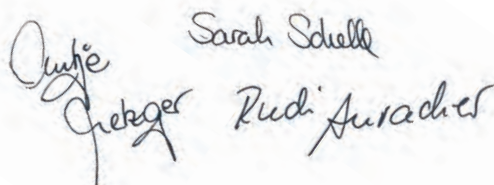 Sarah Schelle
Antje
Metzger Rudi Auracher